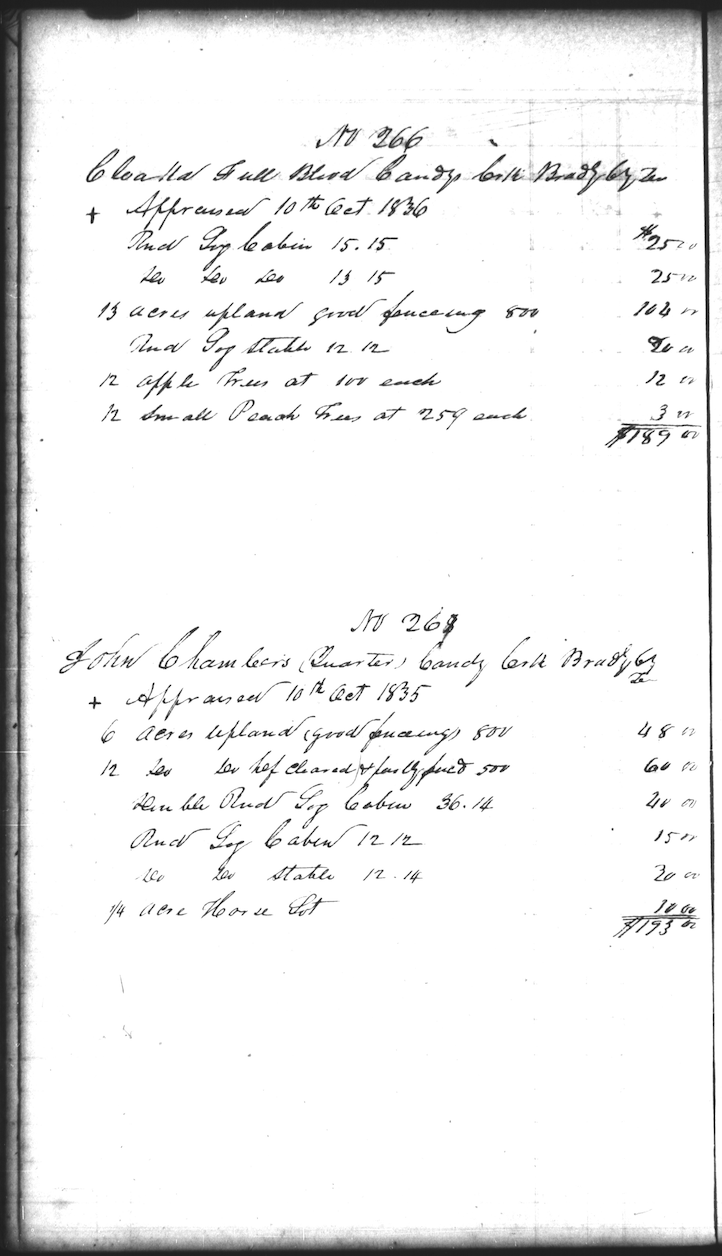 No 266
Full Blood Candys Crk Brady Cty Ten
+ Appraised 10th Oct 1836
Rnd Log Cabin 15.15 $25 00
do do do 13 15 25 00
13 acres upland good fenceing 800 104 00
Rnd Log Stable 12 12 20 00
12 apple Trees at 100 each 12 00
12 Small Peach Trees at 25¢ each 3 00
$189 00
No 26
John Chambers (Quarter) Candy Crk Brady Cty
Ten
+ Appraised 10th Oct 1835
6 acres Upland (good fenceing) 800 48 00
12 do do hlf cleared & partly fencd 500 60 00
double Rnd Log Cabin 36.14 40 00
Rnd Log Cabin 12 12 15 00
do do Stable 12.14 20 00
1/4 acre Horse Lot 10 00
$193 00